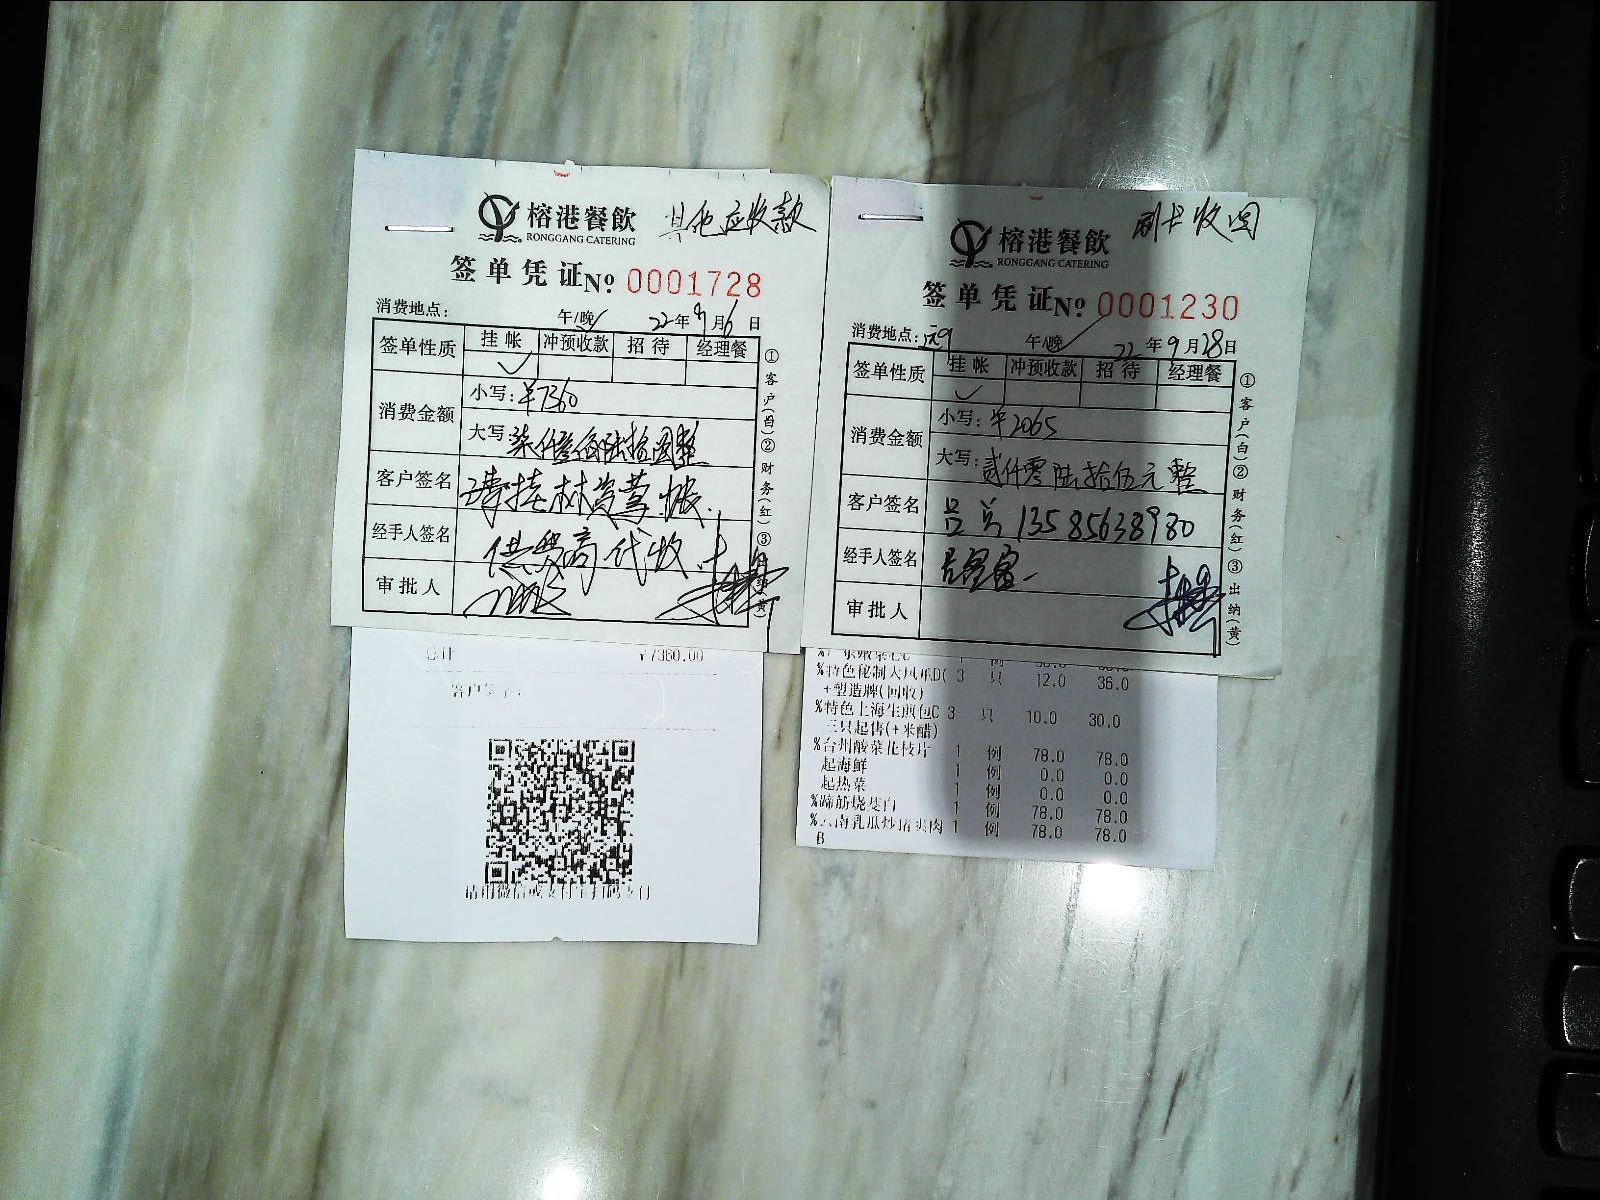 榕港餐飲
RONGGANG CATERING
其他应收款
签单凭证 No 0001728
消费地点: 午/晚 22年9月6日
签单性质 挂帐 冲预收款 招待 经理餐
消费金额 小写: ¥7360
大写: 柒仟叁佰陆拾圆整
客户签名
经手人签名
审批人
①客户(白)②财务(红)③出纳(黄)
合计 ¥7360.00
客户签字:
请用微信或支付宝扫码支付
榕港餐飲
RONGGANG CATERING
刷卡收回
签单凭证 No 0001230
消费地点: 午/晚 22年9月28日
签单性质 挂帐 冲预收款 招待 经理餐
消费金额 小写: ¥2065
大写: 贰仟零陆拾伍元整
客户签名 13585638980
经手人签名
审批人
①客户(白)②财务(红)③出纳(黄)
%特色秘制大凤爪D( 3 只 12.0 36.0
+塑造牌(回收)
%特色上海生煎包C 3 只 10.0 30.0
三只起售(+米醋)
%台州酸菜花枝片 1 例 78.0 78.0
起海鲜 1 例 0.0 0.0
起热菜 1 例 0.0 0.0
%蹄筋烧茭白 1 例 78.0 78.0
1 例 78.0 78.0
B